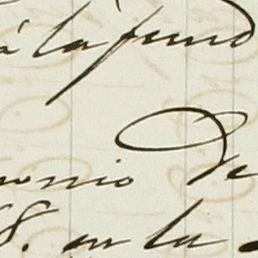 á la fund
onio De
8. en la